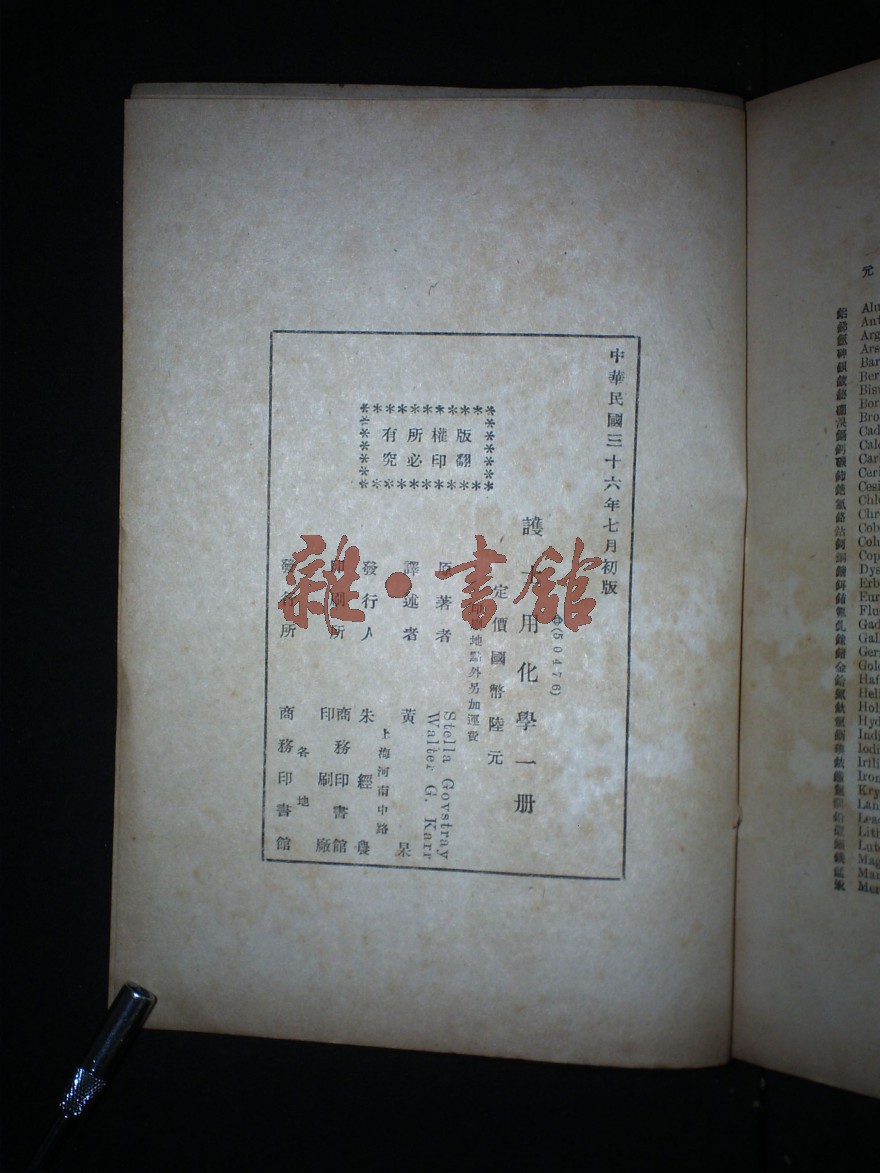 中華民國三十六年七月初版
版權所有
翻印必究
護士用化學一册
(50476)
定價國幣陸元
印刷地點外另加運費
原著者 Stella Govstray
Walter G. Karr
譯述者 黃杲
發行人 朱經農
上海河南中路
印刷所 商務印書館
印刷廠
發行所 商務印書館
各地
雜·書館
元
鋁 Alu
銻 Ant
氬 Arg
砷 Ars
鋇 Bar
Ber
Bis
硼 Bor
溴 Bro
鎘 Cad
鈣 Calc
碳 Car
鈰 Ceri
銫 Cesi
氯 Chlo
鉻 Chr
鈷 Cob
Colu
銅 Cop
鏑 Dys
鉺 Erb
Eur
Flu
Gad
Gall
Ger
金 Gold
鉿 Haf
氦 Heli
Hol
Hyd
銦 Indi
碘 Iodi
銥 Irili
Iron
Kry
Lan
鉛 Lea
Lith
Lute
鎂 Mag
錳 Man
Mer